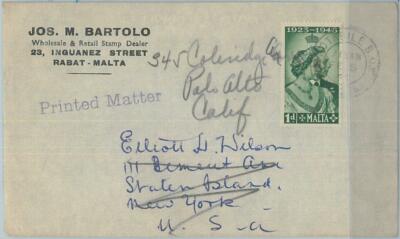 JOS. M. BARTOLO
Wholesale & Retail Stamp Dealer
23, INGUANEZ STREET
RABAT - MALTA
Printed Matter
345 Coleridge Av
Palo Alto
Calif
1923-1948
1d MALTA
Elliott H. Wilson
111 Bement Ave
Staten Island.
New York
U. S. a